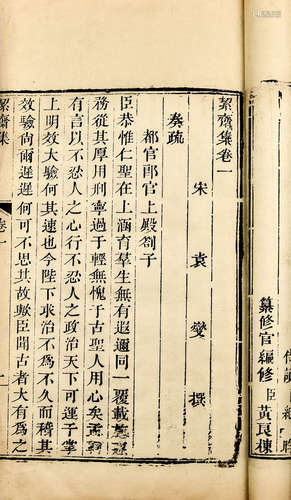 絜齋集卷一
宋 袁燮 撰
奏疏
都官郎官上殿劄子
臣恭惟仁聖在上涵育羣生無有遐邇同一覆載
務從其厚用刑寧過于輕無愧于古聖人用心矣孟
有言以不忍人之心行不忍人之政治天下可運于掌
上明效大驗何其速也今陛下求治不為不久而稽其
效驗尚爾遲遲何可不思其故歟臣聞古者大有為之
絜齋集
卷一
一
纂修官編修臣黃良棟